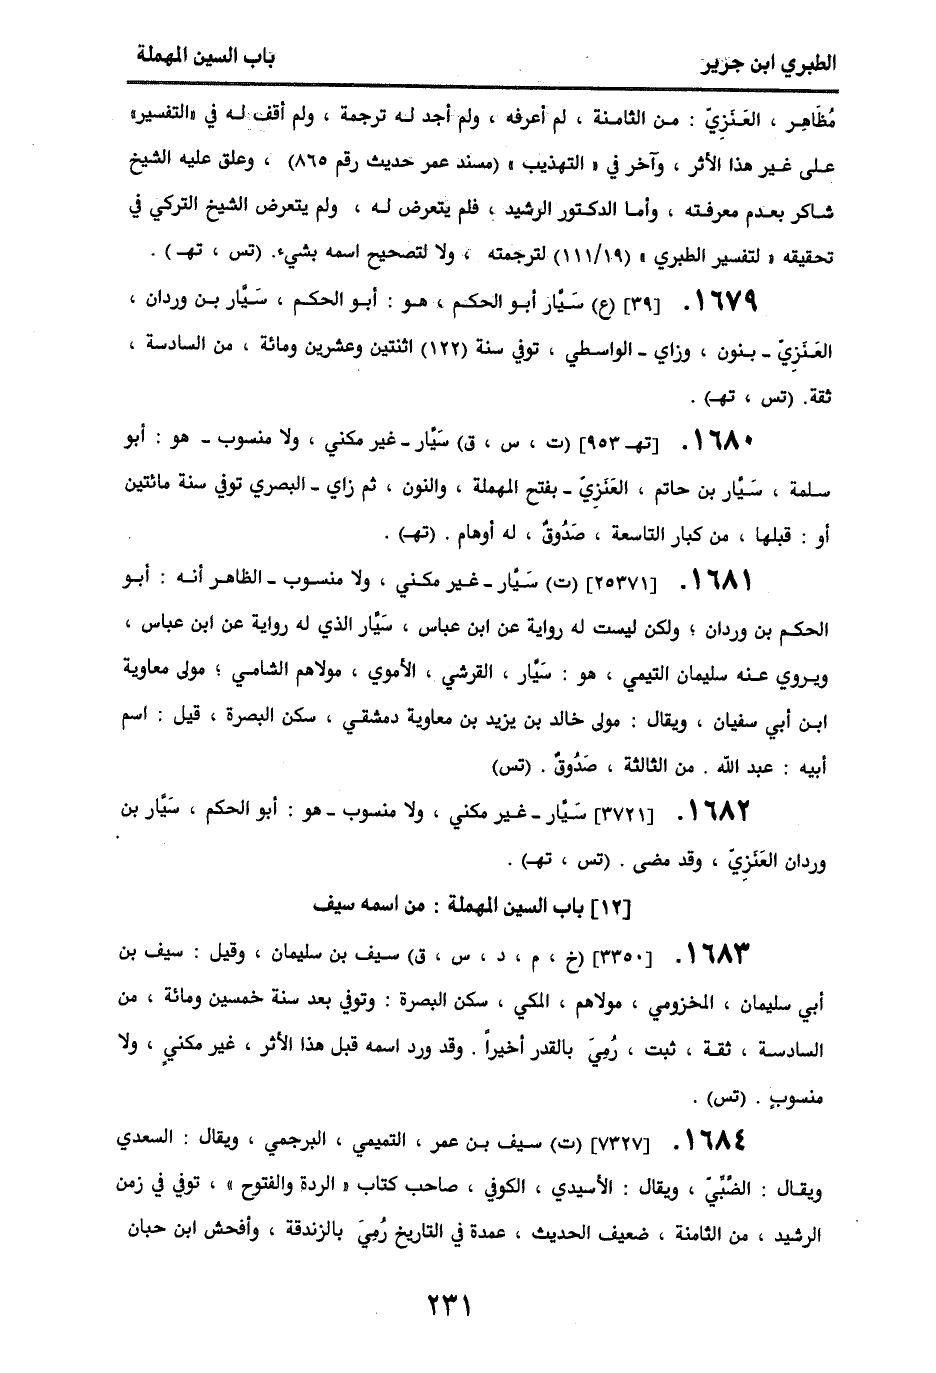 الطبري ابن جرير
باب السين المهملة
مُظَاهِر ، العَنَزِيّ : من الثامنة ، لم أعرفه ، ولم أجد له ترجمة ، ولم أقف له في «التفسير»
على غير هذا الأثر ، وآخر في « التهذيب » (مسند عمر حديث رقم ٨٦٥) ، وعلق عليه الشيخ
شاكر بعدم معرفته ، وأما الدكتور الرشيد ، فلم يتعرض له ، ولم يتعرض الشيخ التركي في
تحقيقه « لتفسير الطبري » (١١١/١٩) لترجمته ، ولا لتصحيح اسمه بشيء. (تس ، تهـ) .
١٦٧٩. [٣٩] (ع) سَيَّار أبو الحكم ، هو : أبو الحكم ، سَيَّار بن وردان ،
العَنَزِيّ ـ بنون ، وزاي ـ الواسطي ، توفي سنة (١٢٢) اثنتين وعشرين ومائة ، من السادسة ،
ثقة. (تس ، تهـ) .
١٦٨٠. [تهـ ٩٥٣] (ت ، س ، ق) سَيَّار ـ غير مكني ، ولا منسوب ـ هو : أبو
سلمة ، سَيَّار بن حاتم ، العَنَزِيّ ـ بفتح المهملة ، والنون ، ثم زاي ـ البصري توفي سنة مائتين
أو : قبلها ، من كبار التاسعة ، صَدُوقٌ ، له أوهام . (تهـ) .
١٦٨١. [٢٥٣٧١] (ت) سَيَّار ـ غير مكني ، ولا منسوب ـ الظاهر أنه : أبو
الحكم بن وردان ؛ ولكن ليست له رواية عن ابن عباس ، سَيَّار الذي له رواية عن ابن عباس ،
ويروي عنه سليمان التيمي ، هو : سَيَّار ، القرشي ، الأموي ، مولاهم الشامي ؛ مولى معاوية
ابن أبي سفيان ، ويقال : مولى خالد بن يزيد بن معاوية دمشقي ، سكن البصرة ، قيل : اسم
أبيه : عبد الله . من الثالثة ، صَدُوقٌ . (تس)
١٦٨٢. [٣٧٢١] سَيَّار ـ غير مكني ، ولا منسوب ـ هو : أبو الحكم ، سَيَّار بن
وردان العَنَزِيّ ، وقد مضى . (تس ، تهـ) .
[١٢] باب السين المهملة : من اسمه سيف
١٦٨٣. [٣٣٥٠] (خ ، م ، د ، س ، ق) سيف بن سليمان ، وقيل : سيف بن
أبي سليمان ، المخزومي ، مولاهم ، المكي ، سكن البصرة : وتوفي بعد سنة خمسين ومائة ، من
السادسة ، ثقة ، ثبت ، رُمِيَ بالقدر أخيراً . وقد ورد اسمه قبل هذا الأثر ، غير مكنيٍ ، ولا
منسوبٍ . (تس) .
١٦٨٤. [٧٣٢٧] (ت) سيف بن عمر ، التميمي ، البرجمي ، ويقال : السعدي
ويقال : الضُّبِّيّ ، ويقال : الأسيدي ، الكوفي ، صاحب كتاب « الردة والفتوح » ، توفي في زمن
الرشيد ، من الثامنة ، ضعيف الحديث ، عمدة في التاريخ رُمِيَ بالزندقة ، وأفحش ابن حبان
٢٣١